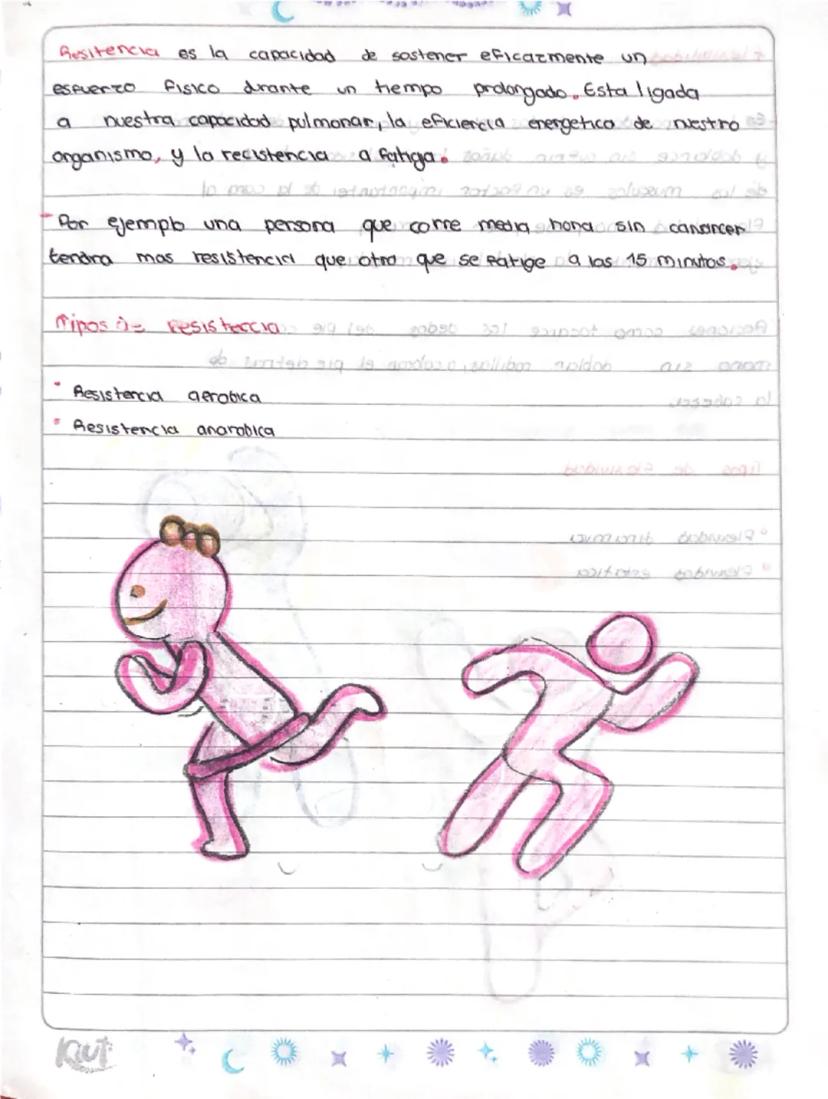 Resitencia es la capacidad de sostener eficazmente un
esfuerzo fisico durante un tiempo prolongado. Esta ligada
a nuestra capacidad pulmonar, la eficiencia energetica de nuestro
organismo, y la recistencia a fatiga.
- Por ejemplo una persona que corre media hora sin cansarcer
tendra mas resistencia que otro que se fatige a los 15 minutos.
Tipos de resisteccia
• Resistencia aerobica
• Resistencia anarobica